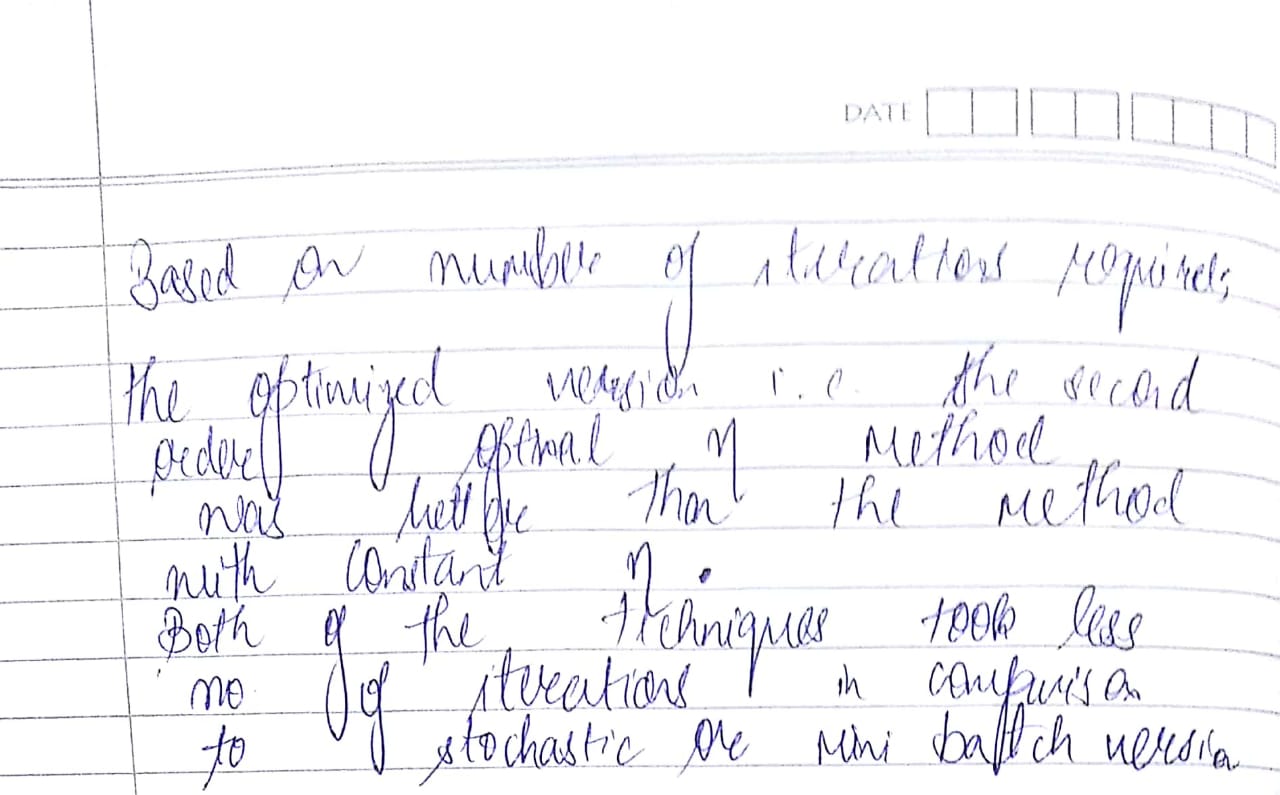 DATE
Based on number of iterations required,
the optimized version i.e. the second
order optimal η method
was better than the method
with constant η.
Both of the techniques took less
no. of iterations in comparison
to stochastic or mini batch version